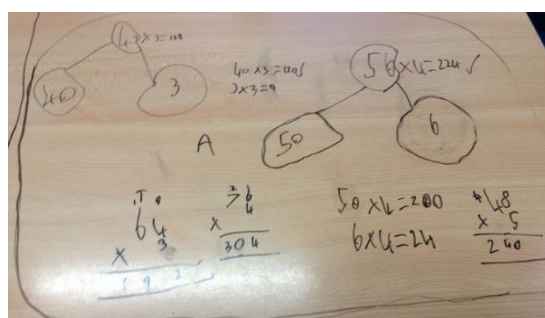 43 x 3 = 129
40
3
40 x 3 = 120 ✓
3 x 3 = 9
56 x 4 = 224 ✓
50
6
A
T o
64
x 3
192
2
76
x 4
304
50 x 4 = 200
6 x 4 = 24
4
48
x 5
240